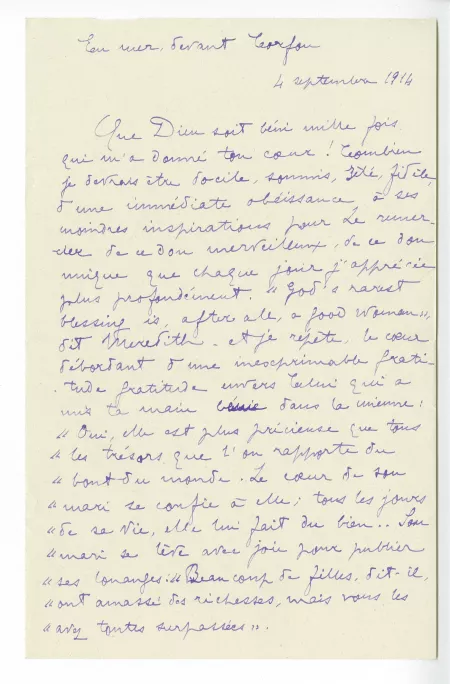 En mer, devant Corfou
4 septembre 1914
Que Dieu soit béni mille fois
qui m'a donné ton cœur ! Combien
je devrais être docile, soumis, zélé, fidèle,
d'une immédiate obéissance à ses
moindres inspirations pour Le remer-
cier de ce don merveilleux, de ce don
unique que chaque jour j'apprécie
plus profondément. "God's rarest
blessing is, after all, a good woman",
dit Meredith. Et je répète, le cœur
débordant d'une inexprimable grati-
tude gratitude envers Celui qui a
mis ta main dans la mienne :
"Oui, elle est plus précieuse que tous
"les trésors que l'on rapporte du
"bout du monde. Le cœur de son
"mari se confie à elle ; tous les jours
"de sa vie, elle lui fait du bien.. Son
"mari se lève avec joie pour publier
"ses louanges : "Beaucoup de filles, dit-il,
"ont amassé des richesses, mais vous les
"avez toutes surpassées".